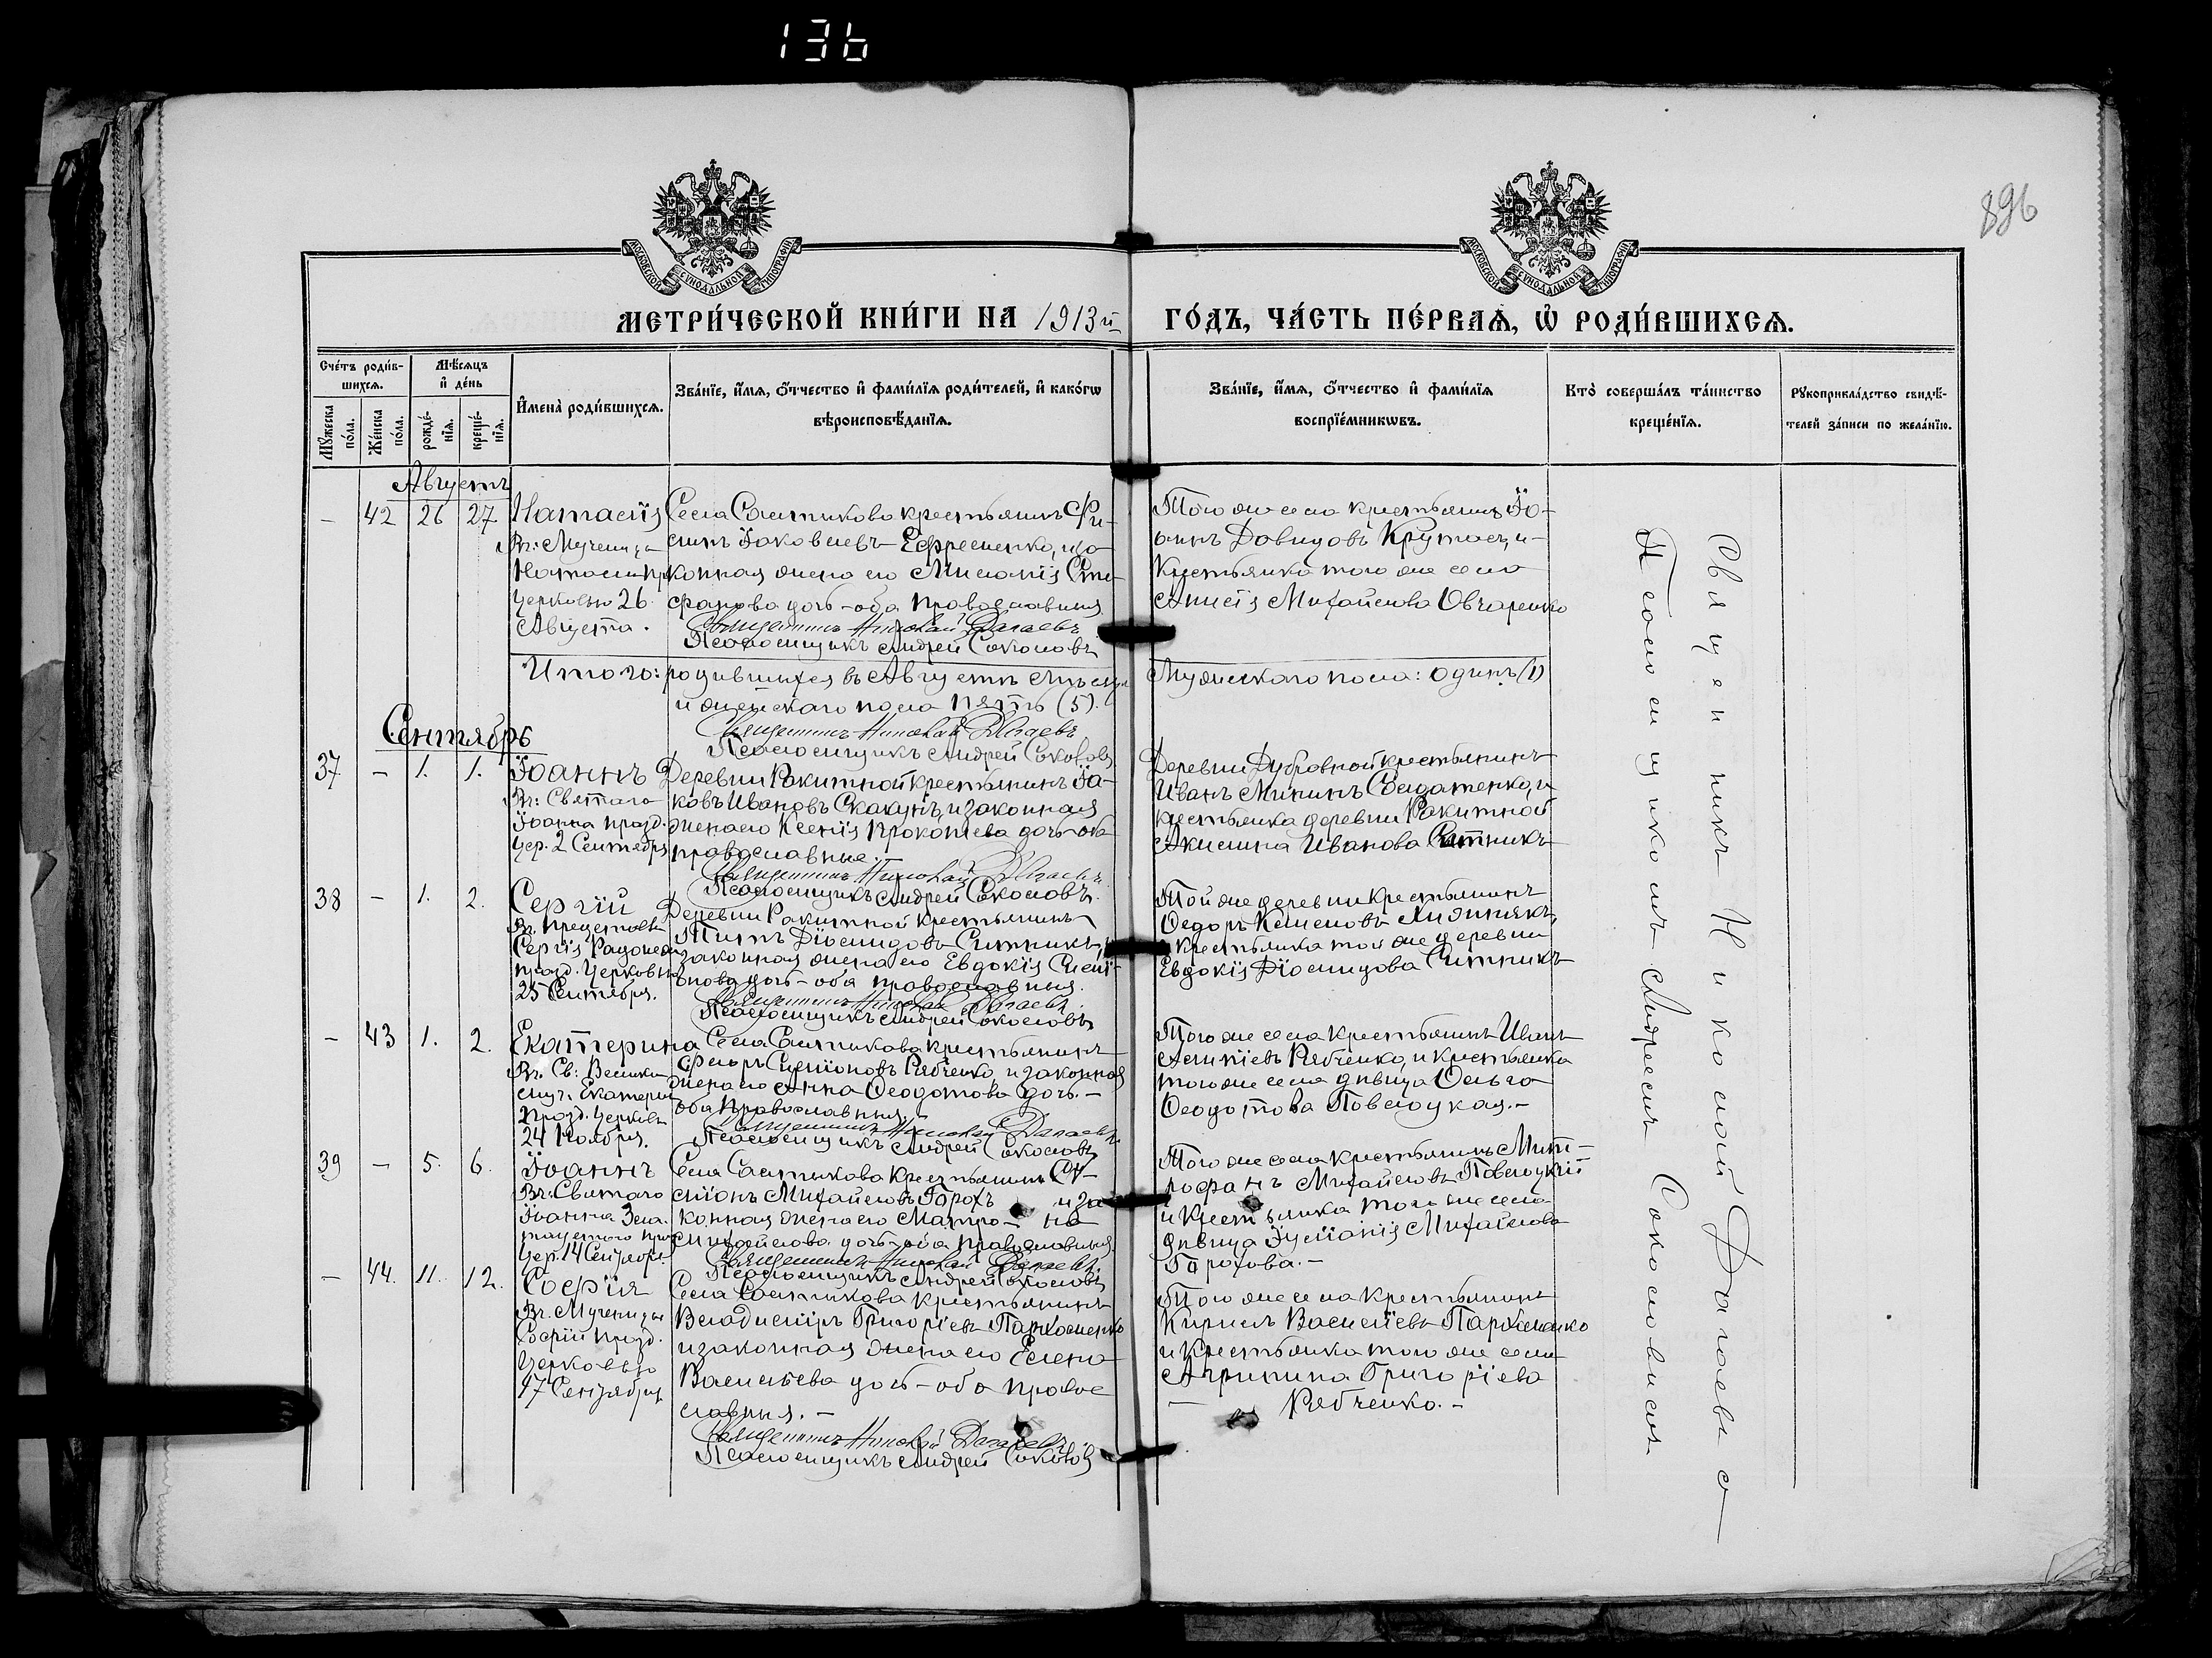 136
896
МОСКОВСКОЙ СѴНОДАЛЬНОЙ ТИПОГРАФІИ
МОСКОВСКОЙ СѴНОДАЛЬНОЙ ТИПОГРАФІИ
МЕТРИ́ЧЕСКОЙ КНИ́ГИ НА 1913й ГО́ДЪ, ЧА́СТЬ ПЕ́РВАѦ, Ѡ҆ РОДИ́ВШИХСѦ.
Сче́тъ роди́в-
шихсѧ.
Мѣ́сѧцъ
и҆ де́нь
Мꙋ́жеска
по́ла.
Же́нска
по́ла.
рожде́-
нїѧ.
креще́-
нїѧ.
И҆мена̀ роди́вшихсѧ.
Зва́нїе, и҆́мѧ, ѻ҆́тчество и҆ фами́лїѧ роди́телей, и҆ како́гѡ
вѣроисповѣ́данїѧ.
Зва́нїе, и҆́мѧ, ѻ҆́тчество и҆ фами́лїѧ
воспрїе́мникѡвъ.
Кто̀ соверша́лъ та́инство
креще́нїѧ.
Рꙋкоприкла́дство свидѣ́-
телей за́писи по жела́нїю.
Августъ
— 42 26 27
Наталія
Въ: Мученицы
Наталіи пр.
церковью 26
Августа.
Села Салтыкова крестьянинъ Фи-
липъ Іаковлевъ Ефременко, и за-
конная жена его Меланія Сте-
фанова дочь - оба православныя
Священникъ Николай Далаевъ
Псаломщикъ Андрей Соколовъ
Того же села крестьянинъ Іо-
аннъ Давидовъ Крутась, и
Крестьянка того же села
Анисія Михайлова Овчаренко
Итого: родившихся въ Августѣ мѣсяцѣ
Мужескаго пола: одинъ (1)
и женскаго пола пять (5).
Священникъ Николай Далаевъ
Псаломщикъ Андрей Соколовъ
Сентябрь
37 — 1. 1.
Іоаннъ
Въ: Святаго
Іоанна празд.
цер. 2 Сентября
Деревни Ракитной крестьянинъ Іа-
ковъ Ивановъ Скакунъ, и законная
жена его Ксенія Прокопіева дочь - оба
православные.
Священникъ Николай Далаевъ.
Псаломщикъ Андрей Соколовъ.
Деревни Дубровной крестьянинъ
Иванъ Мининъ Солдатенко, и
крестьянка деревни Ракитной
Акилина Иванова Ситникъ
38 — 1. 2.
Сергій
Въ. Преставл.
Сергія Радонеж.
празд. Церковью
25 Сентября.
Деревни Ракитной крестьянинъ
Титъ Діомидовъ Ситникъ, и
законная жена его Евдокія Симе-
онова дочь - оба православныя.
Священникъ Николай Далаевъ.
Псаломщикъ Андрей Соколовъ
Той же деревни Крестьянинъ
Ѳедоръ
и крестьянка той же деревни
Евдокія Діомидова Ситникъ
— 43 1. 2.
Екатерина
Въ. Св: Велико-
муч. Екатерины
празд. Церковью
24 Ноября.
Села Салтыкова крестьянинъ
Флоръ Симеоновъ Рябченко и законная
жена его Анна Ѳеодотова дочь. -
оба Православныя. -
Священникъ Николай Далаевъ.
Псаломщикъ Андрей Соколовъ
Того же села крестьянинъ Иванъ
Рябченко, и крестьянка
того же села дѣвица Ольга
Ѳеодотова Повелоцкая. -
39 — 5. 6.
Іоаннъ
Въ: Святаго
Іоанна Зла-
тоустаго пр.
Цер. 14 Сентября.
Села Салтыкова Крестьянинъ Си-
меонъ Михайловъ Горохъ и за-
конная жена его Матро - на
Михайлова дочь - оба Православныя.
Священникъ Николай Далаевъ.
Псаломщикъ Андрей Соколовъ
Того же села крестьянинъ Мит-
рофанъ Михайловъ Повелоцкій
и Крестьянка того же села
дѣвица Іуліанія Михайлова
Горохова. -
— 44. 11. 12.
Софія
Въ. Мученицы
Софіи празд.
Церковью
17 Сентября
Села Салтыкова крестьянинъ
Владиміръ Григоріевъ Пархоменко
и законная жена его Елена
Васильева дочь - оба правос-
лавныя. -
Священникъ Николай Далаевъ.
Псаломщикъ Андрей Соколовъ
Того же села Крестьянинъ
Кирилъ Васильевъ Пархоменко
и Крестьянка того же села
Агрипина Григоріева
— Рябченко. -
Священникъ Николай Далаевъ съ
Псаломщикомъ Андреемъ Соколовымъ